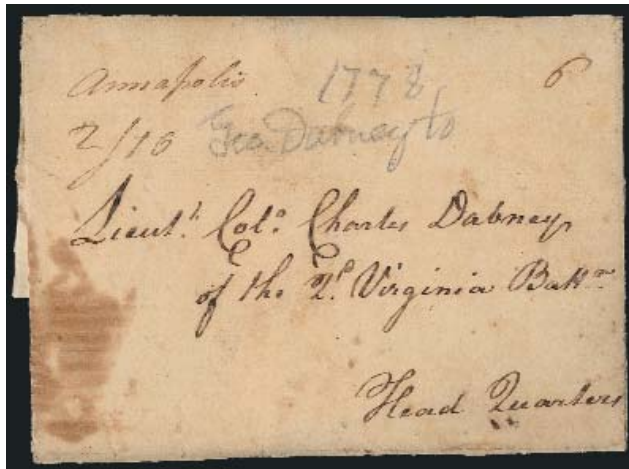 Annapolis 1778 6
2/16 Geo. Dabney to
Lieut.t Col.o Charles Dabney
of the 2.d Virginia Batt.n
Head Quarters